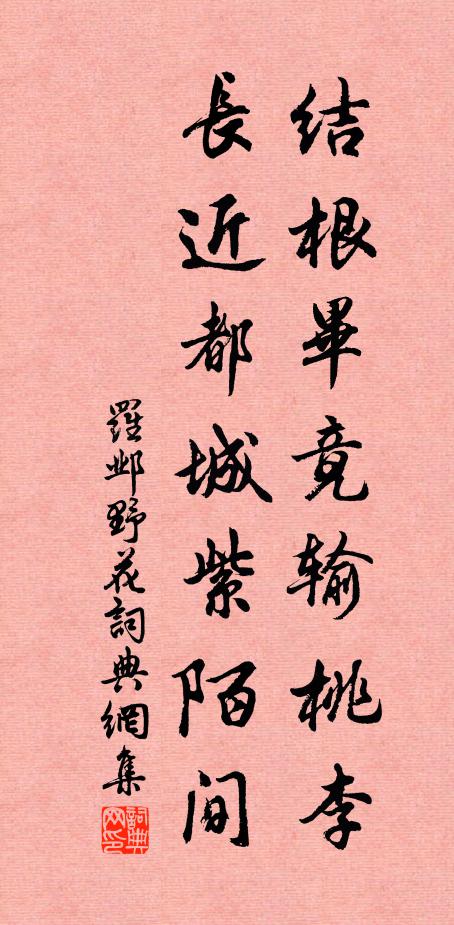 结根畢竟输桃李
長近都城紫陌间
羅邺野花詞典網集
詞典网印